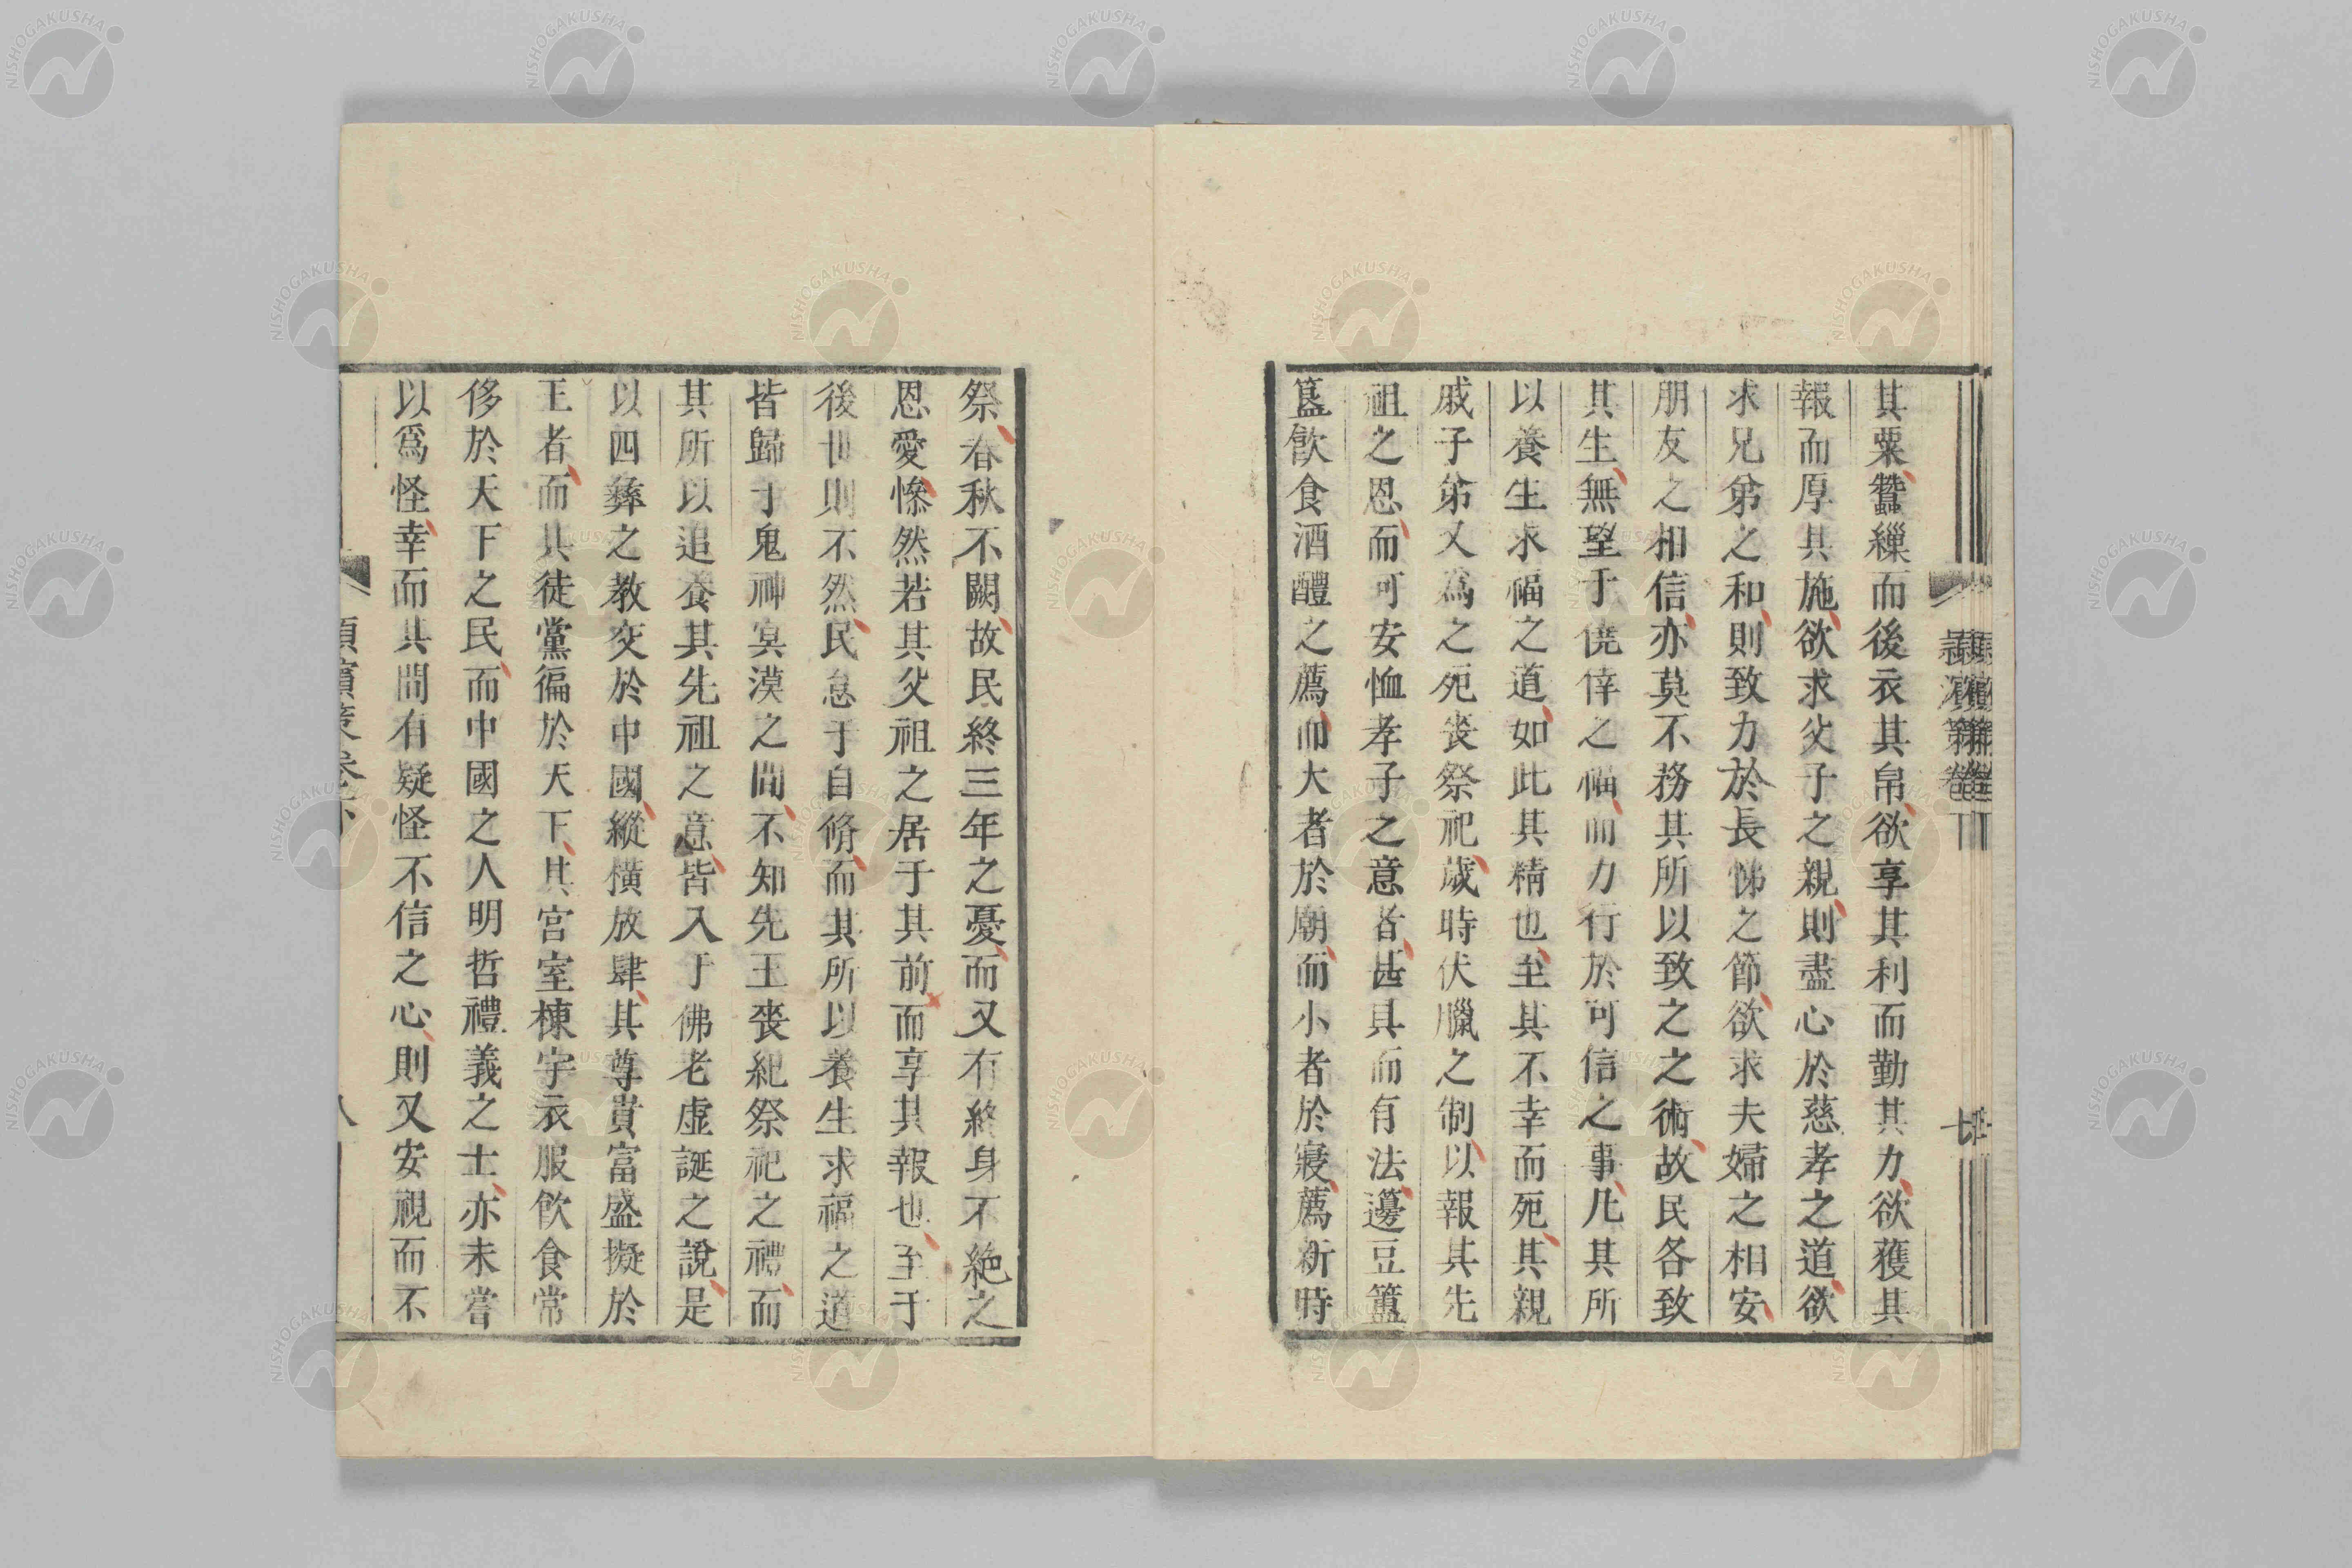 其粟蠶繅而後衣其帛欲享其利而勤其力欲獲其
報而厚其施欲求父子之親則盡心於慈孝之道欲
求兄弟之和則致力於長悌之節欲求夫婦之相安
朋友之相信亦莫不務其所以致之之術故民各致
其生無望于僥倖之福而力行於可信之事凡其所
以養生求福之道如此其精也至其不幸而死其親
戚子弟又為之死喪祭祀歲時伏臘之制以報其先
祖之恩而可安恤孝子之意者甚具而有法籩豆簠
簋飲食酒醴之薦而大者於廟而小者於寢薦新時
祭春秋不闕故民終三年之憂而又有終身不絶之
恩愛慘然若其父祖之居于其前而享其報也至于
後世則不然民怠于自脩而其所以養生求福之道
皆歸于鬼神㝠漠之間不知先王喪紀祭祀之禮而
其所以追養其先祖之意皆入于佛老虛誕之說是
以四彝之教交於中國縱橫放肆其尊貴富盛擬於
王者而其徒黨徧於天下其宮室棟宇衣服飲食常
侈於天下之民而中國之人明哲禮義之士亦未嘗
以爲怪幸而其間有疑怪不信之心則又安視而不
NISHOGAKUSHA